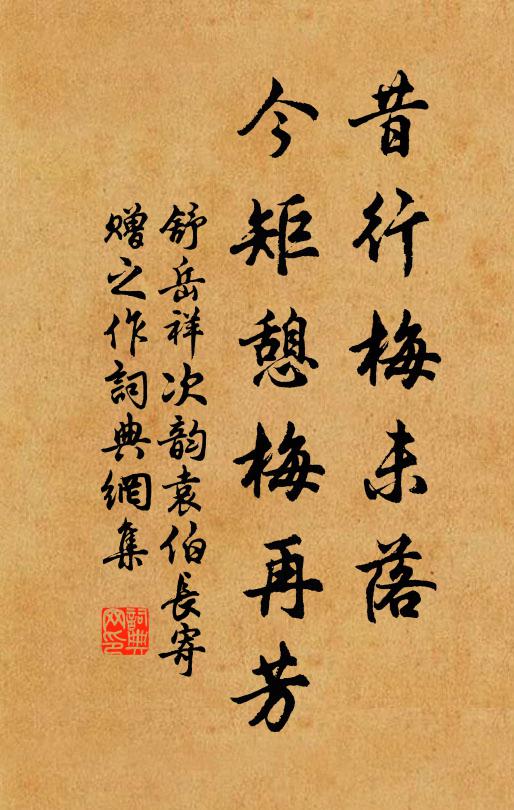 昔行梅未落
今矩憩梅再芳
舒岳祥次韵袁伯長寄
贈之作詞典網集
詞典網印